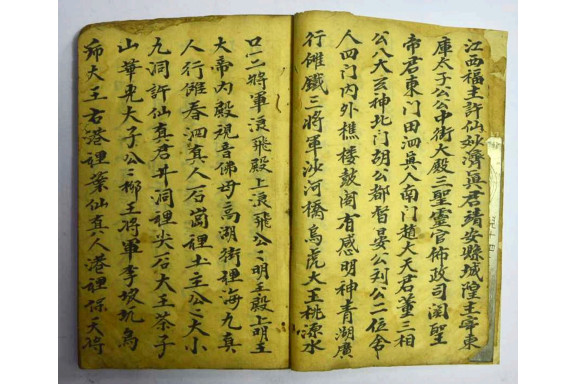 江西福主許仙妙濟真君靖安縣城隍主宰東
庫太子公公中街大殿三聖靈官佈政司関聖
帝君東门田泗真人南门趙大天君董三相
公八大云神北门胡公都督晏公刘公二位舍
人四门内外樵楼鼓阁有感明神青湖廣
行儺鐵三將軍沙河橋烏虎大王桃源水
口一二將軍浪飛殿上浪飛公公明王殿上明王
大帝内殿視音佛母高湖街裡海九真
人行儺春泗真人石崗裡土主公公大小
九洞許仙真君井洞裡尖谷大王茶子
山華光大子公公柳王將軍李坡坑烏
師大王右港裡葉仙真人港裡保大將